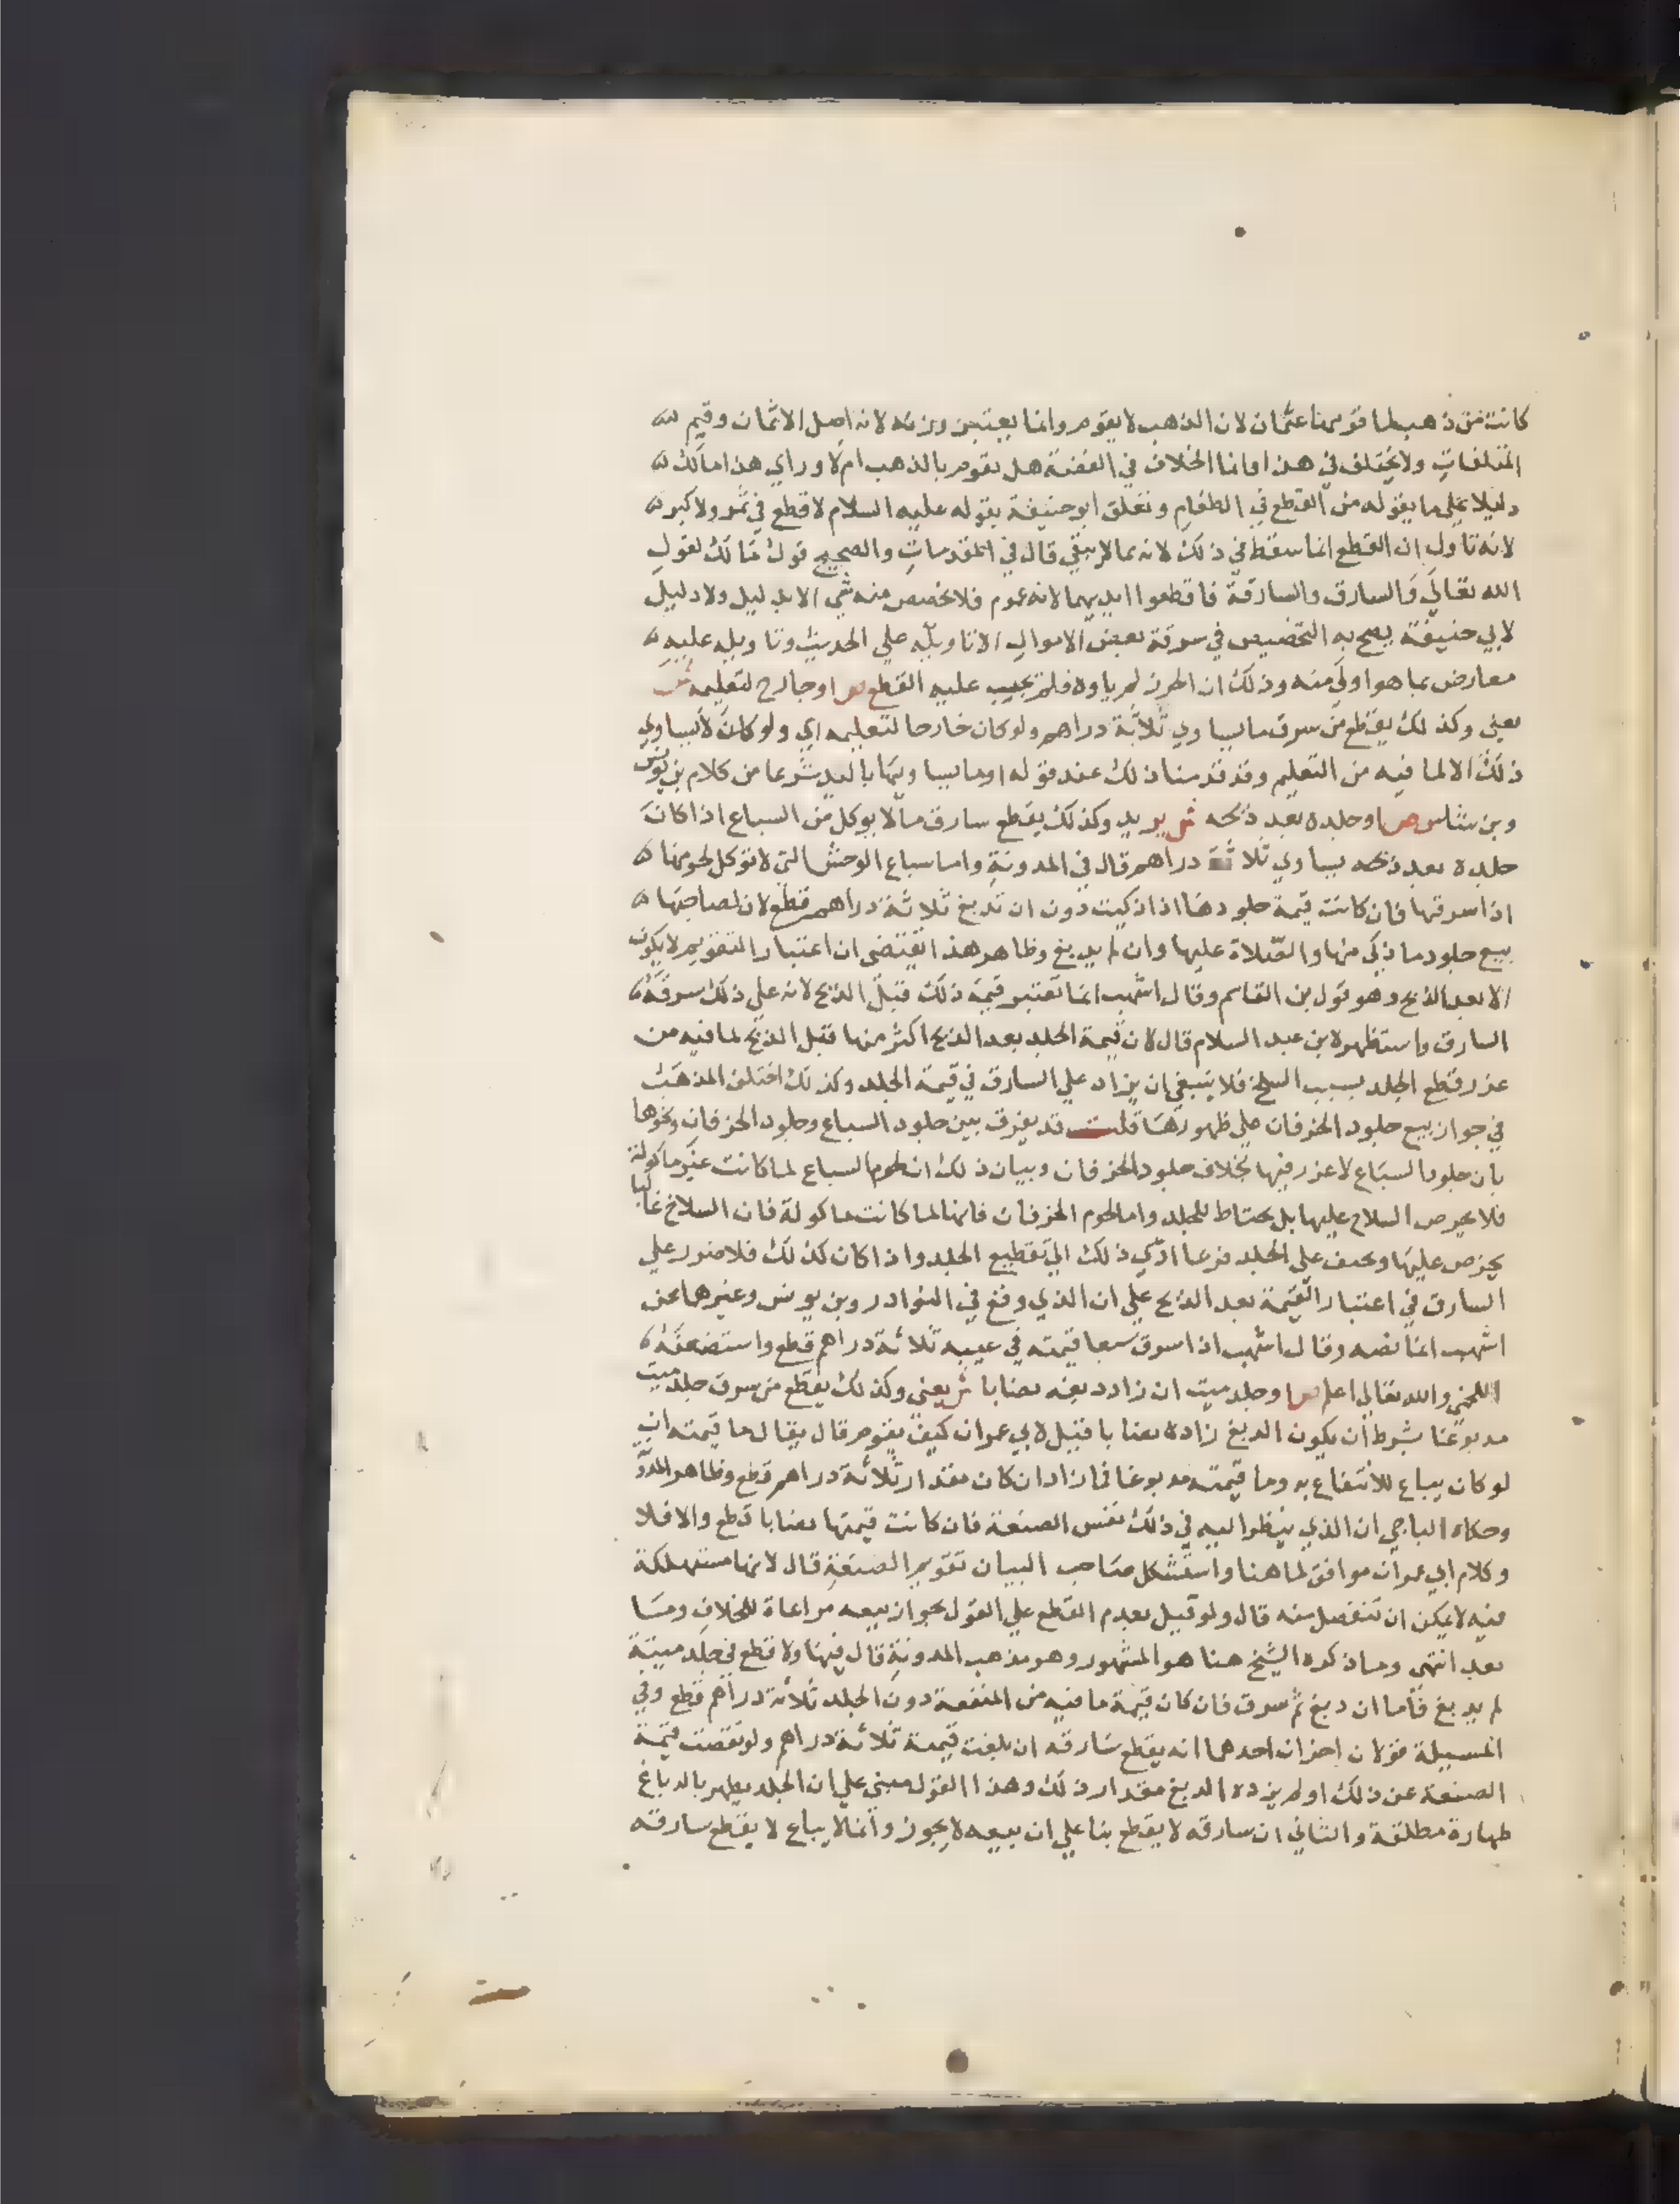 كانت من ذهب لما قومها عثمان لان الذهب لا يقوم وانما يعتبر وزنه لانه اصل الاثمان وقيم
المتلفات ولا يختلف في هذا وانما الخلاف في الفضة هل يقوم بالذهب ام لا وراي هذا مالك
دليلا علي ما يقوله من القطع في الطعام وتعلق ابو حنيفة بقوله عليه السلام لا قطع في ثمر ولا كبر
لانه تاول ان القطع انما سقط في ذلك لانه مما لا يبقي قال في المقدمات والصحيح قول مالك لقول
الله تعالي والسارق والسارقة فاقطعوا ايديهما لانه عموم فلا يخصص منه شي الا بدليل ولا دليل
لابي حنيفة يصح به التخصيص في سرقة بعض الاموال الا تاويله علي الحديث وتاويله عليه
معارض بما هو اولي منه وذلك ان الحرز لم ياوه فلم يجب عليه القطع ص او جارح لتعليمه ش
يعني وكذلك يقطع من سرق ما يساوي ثلاثة دراهم ولو كان جارحا لتعليمه اي ولو كان لا يساوي
ذلك الا لما فيه من التعليم وقد قدمنا ذلك عند قوله او ما يساويها بالبلد شرعا من كلام بن يونس
وبن شاس ص او جلده بعد ذبحه ش يريد وكذلك يقطع سارق ما لا يوكل من السباع اذا كان
جلده بعد ذبحه يساوي ثلاثة دراهم قال في المدونة واما سباع الوحش التي لا توكل لحومها
اذا سرقها فان كانت قيمة جلودها اذا ذكيت دون ان تدبغ ثلاثة دراهم قطع لان لصاحبها
بيع جلود ما ذكي منها والصلاة عليها وان لم يدبغ وظاهر هذا يقتضي ان اعتبار التقويم لا يكون
الا بعد الذبح وهو قول بن القاسم وقال اشهب انما تعتبر قيمة ذلك قبل الذبح لانه علي ذلك سرقه
السارق واستظهره بن عبد السلام قال لان قيمة الجلد بعد الذبح اكثر منها قبل الذبح لما فيه من
غرر قطع الجلد بسبب السلخ فلا ينبغي ان يزاد علي السارق في قيمة الجلد وكذلك اختلف المذهب
في جواز بيع جلود الخرفان علي ظهورها قلت قد يفرق بين جلود السباع وجلود الخرفان ونحوها
بان جلود السباع لا غرر فيها بخلاف جلود الخرفان وبيان ذلك ان لحوم السباع لما كانت غير ماكولة
فلا يحرص السلاخ عليها بل يحتاط للجلد واما لحوم الخرفان فانها لما كانت ماكولة فان السلاخ غالبا
يحرص عليها ويحيف علي الجلد فربما ادي ذلك الي تقطيع الجلد واذا كان كذلك فلا ضرر علي
السارق في اعتبار القيمة بعد الذبح علي ان الذي وقع في النوادر وبن يونس وغيرهما عن
اشهب انما نصه وقال اشهب اذا سرق سبعا قيمته في عينه ثلاثة دراهم قطع واستضعفه
اللخمي والله تعالي اعلم ص او جلد ميتة ان زاد دبغه نصابا ش يعني وكذلك يقطع من سرق جلد ميتة
مدبوغا بشرط ان يكون الدبغ زاده نصابا قيل لابي عمران كيف يقوم قال يقال ما قيمته ان
لو كان يباع للانتفاع به وما قيمته مدبوغا فما زاد ان كان مقدار ثلاثة دراهم قطع وظاهر المدونة
وحكاه الباجي ان الذي ينظر اليه في ذلك نفس الصنعة فان كانت قيمتها نصابا قطع والا فلا
وكلام ابي عمران موافق لما هنا واستشكل صاحب البيان تقويم الصنعة قال لانها مستهلكة
فيه لا يمكن ان تنفصل منه قال ولو قيل بعدم القطع علي القول بجواز بيعه مراعاة للخلاف وما
بعد انتهي وما ذكره الشيخ هنا هو المشهور وهو مذهب المدونة قال فيها ولا قطع في جلد ميتة
لم يدبغ فاما ان دبغ ثم سرق فان كان قيمة ما فيه من المنفعة دون الجلد ثلاثة دراهم قطع وفي
المسيلة قولان اخران احدهما انه يقطع سارقه ان بلغت قيمته ثلاثة دراهم ولو نقصت قيمة
الصنعة عن ذلك او لم يزده الدبغ مقدار ذلك وهذا القول مبني علي ان الجلد يطهر بالدباغ
طهارة مطلقة والثاني ان سارقه لا يقطع بنا علي ان بيعه لا يجوز وانما لا يباع لا يقطع سارقه